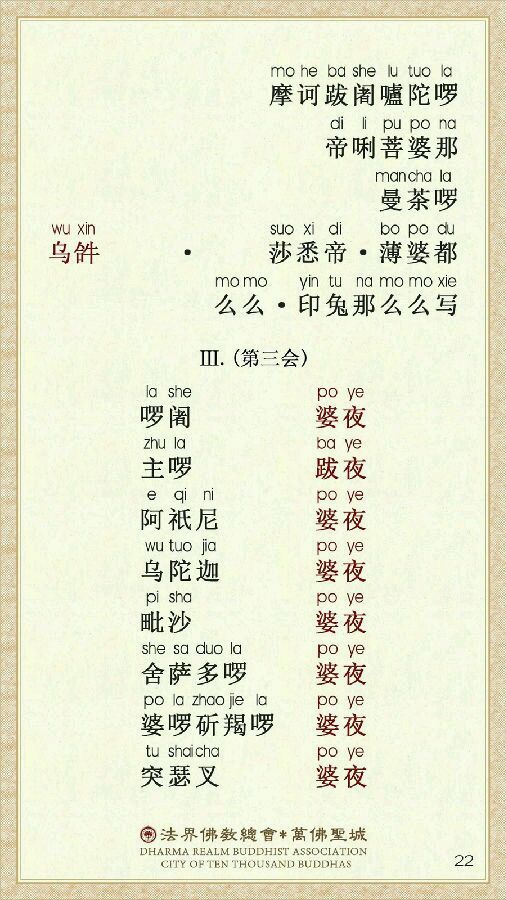 mo he ba she lu tuo la
摩诃跋阇嚧陀啰
di li pu po na
帝唎菩婆那
man cha la
曼茶啰
wu xin suo xi di bo po du
乌𤙖 · 莎悉帝 · 薄婆都
mo mo yin tu na mo mo xie
么么 · 印兔那么么写
III. (第三会)
la she po ye
啰阇 婆夜
zhu la ba ye
主啰 跋夜
e qi ni po ye
阿祇尼 婆夜
wu tuo jia po ye
乌陀迦 婆夜
pi sha po ye
毗沙 婆夜
she sa duo la po ye
舍萨多啰 婆夜
po la zhao jie la po ye
婆啰斫羯啰 婆夜
tu shai cha po ye
突瑟叉 婆夜
法界佛教總會*萬佛聖城
DHARMA REALM BUDDHIST ASSOCIATION
CITY OF TEN THOUSAND BUDDHAS
22